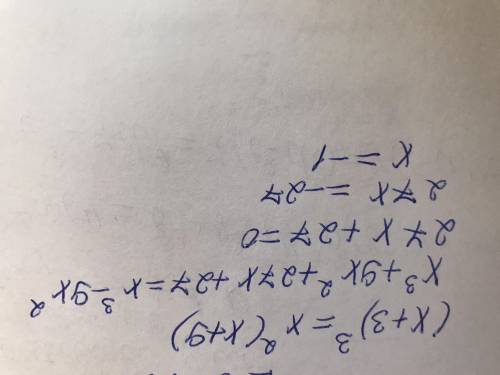 (x+3)³=x²(x+9)
x³+9x²+27x+27=x³-9x²
27x+27=0
27x=-27
x=-1